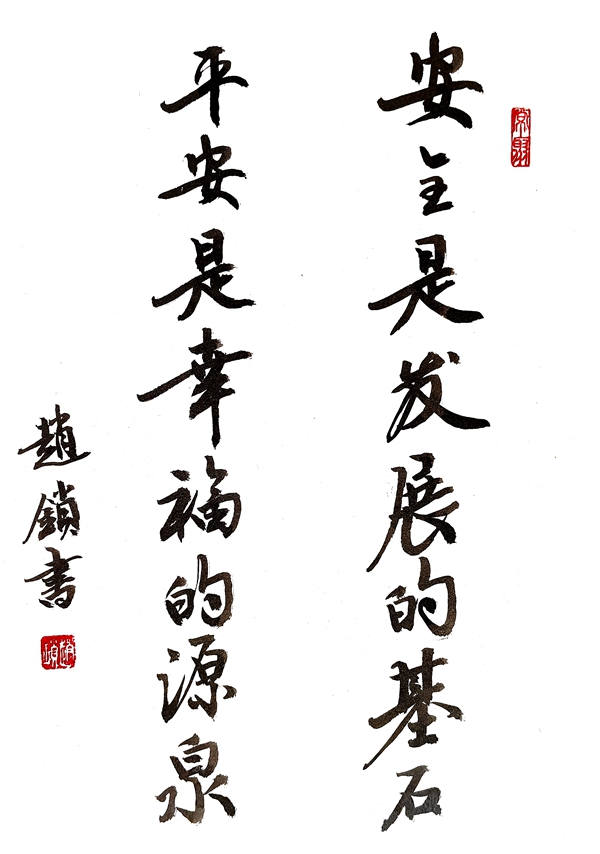 安全是发展的基石
平安是幸福的源泉
趙鎖書